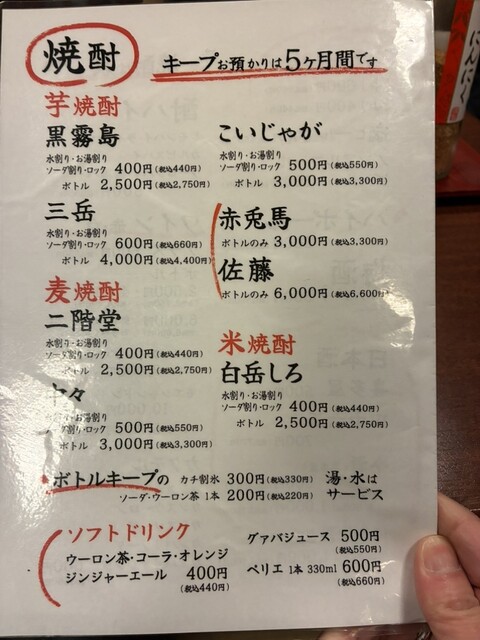 焼酎
キープお預かりは5ヶ月間です
芋焼酎
黒霧島
水割り・お湯割り
ソーダ割り・ロック 400円(税込440円)
ボトル 2,500円(税込2,750円)
こいじゃが
水割り・お湯割り
ソーダ割り・ロック 500円(税込550円)
ボトル 3,000円(税込3,300円)
三岳
水割り・お湯割り
ソーダ割り・ロック 600円(税込660円)
ボトル 4,000円(税込4,400円)
赤兎馬
ボトルのみ 3,000円(税込3,300円)
佐藤
ボトルのみ 6,000円(税込6,600円)
麦焼酎
二階堂
水割り・お湯割り
ソーダ割り・ロック 400円(税込440円)
ボトル 2,500円(税込2,750円)
々
水割り・お湯割り
ソーダ割り・ロック 500円(税込550円)
ボトル 3,000円(税込3,300円)
米焼酎
白岳しろ
水割り・お湯割り
ソーダ割り・ロック 400円(税込440円)
ボトル 2,500円(税込2,750円)
ボトルキープの カチ割氷 300円(税込330円) 湯・水は
ソーダ・ウーロン茶 1本 200円(税込220円) サービス
ソフトドリンク
ウーロン茶・コーラ・オレンジ
ジンジャーエール 400円
(税込440円)
グァバジュース 500円
(税込550円)
ペリエ 1本 330ml 600円
(税込660円)
にんにく